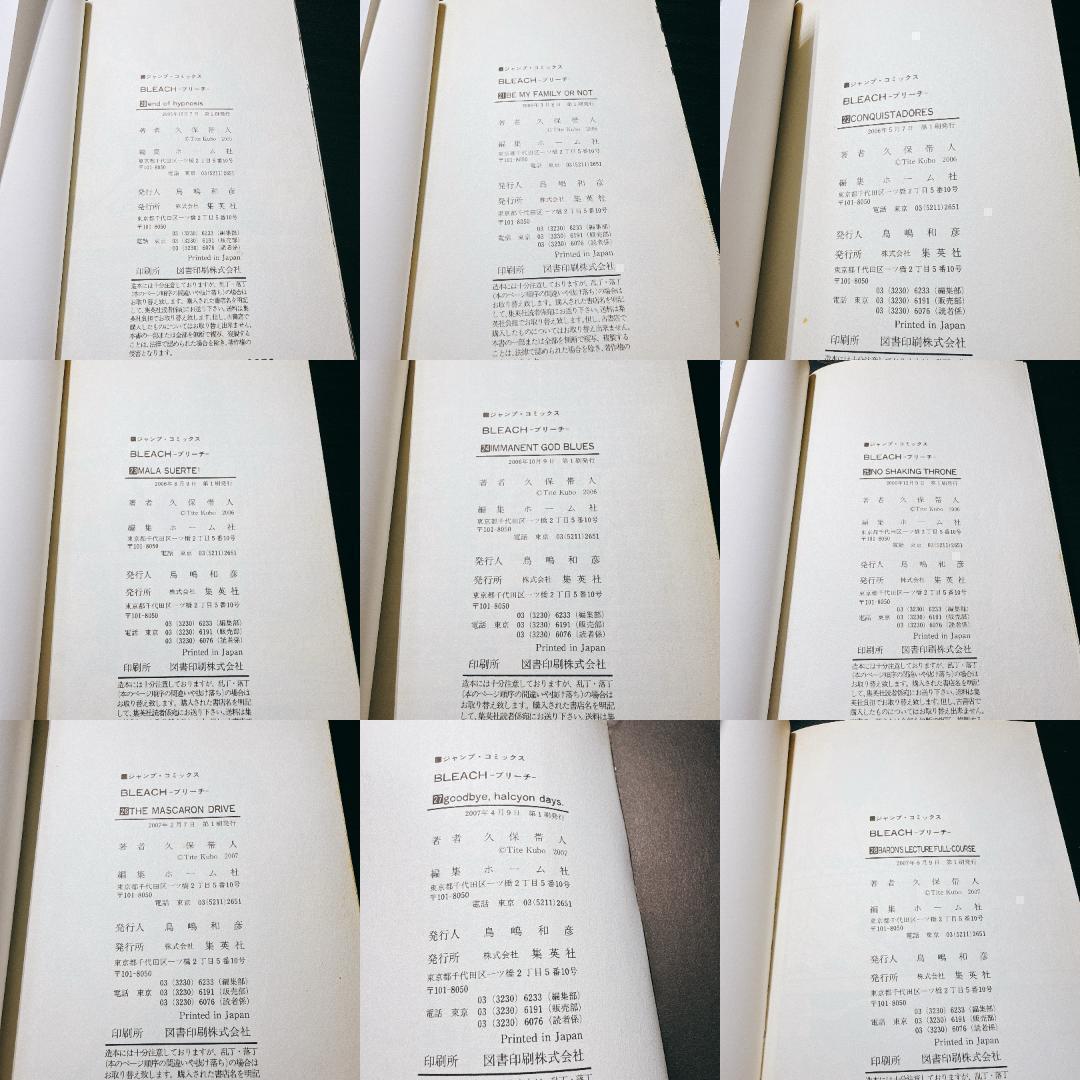 ■ジャンプ・コミックス
BLEACH-ブリーチ-
20 end of hypnosis
2005年12月7日 第1刷発行
著者 久保帯人
©Tite Kubo 2005
編集 ホーム社
東京都千代田区一ツ橋2丁目5番10号
〒101-8050
電話 東京 03(5211)2651
発行人 鳥嶋和彦
発行所 株式会社 集英社
東京都千代田区一ツ橋2丁目5番10号
〒101-8050
03(3230)6233(編集部)
電話 東京 03(3230)6191(販売部)
03(3230)6076(読者係)
Printed in Japan
印刷所 図書印刷株式会社
造本には十分注意しておりますが、乱丁・落丁
(本のページ順序の間違いや抜け落ち)の場合は
お取り替え致します。購入された書店名を明記
して、集英社読者係宛にお送り下さい。送料は集
英社負担でお取り替え致します。但し、古書店で
購入したものについてはお取り替え出来ません。
本書の一部または全部を無断で複写、複製する
ことは、法律で認められた場合を除き、著作権の
侵害となります。
■ジャンプ・コミックス
BLEACH-ブリーチ-
21 BE MY FAMILY OR NOT
第1刷発行
著者 久保帯人
©Tite Kubo 2006
編集 ホーム社
東京都千代田区一ツ橋2丁目5番10号
〒101-8050
電話 東京 03(5211)2651
発行人 鳥嶋和彦
発行所 株式会社 集英社
東京都千代田区一ツ橋2丁目5番10号
〒101-8050
03(3230)6233(編集部)
電話 東京 03(3230)6191(販売部)
03(3230)6076(読者係)
Printed in Japan
印刷所 図書印刷株式会社
造本には十分注意しておりますが、乱丁・落丁
(本のページ順序の間違いや抜け落ち)の場合は
お取り替え致します。購入された書店名を明記
して、集英社読者係宛にお送り下さい。送料は集
英社負担でお取り替え致します。但し、古書店で
購入したものについてはお取り替え出来ません。
本書の一部または全部を無断で複写、複製する
ことは、法律で認められた場合を除き、著作権の
■ジャンプ・コミックス
BLEACH-ブリーチ-
22 CONQUISTADORES
2006年5月7日 第1刷発行
著者 久保帯人
©Tite Kubo 2006
編集 ホーム社
東京都千代田区一ツ橋2丁目5番10号
〒101-8050
電話 東京 03(5211)2651
発行人 鳥嶋和彦
発行所 株式会社 集英社
東京都千代田区一ツ橋2丁目5番10号
〒101-8050
03(3230)6233(編集部)
電話 東京 03(3230)6191(販売部)
03(3230)6076(読者係)
Printed in Japan
印刷所 図書印刷株式会社
■ジャンプ・コミックス
BLEACH-ブリーチ-
23 MALA SUERTE!
2006年8月9日 第1刷発行
著者 久保帯人
©Tite Kubo 2006
編集 ホーム社
東京都千代田区一ツ橋2丁目5番10号
〒101-8050
電話 東京 03(5211)2651
発行人 鳥嶋和彦
発行所 株式会社 集英社
東京都千代田区一ツ橋2丁目5番10号
〒101-8050
03(3230)6233(編集部)
電話 東京 03(3230)6191(販売部)
03(3230)6076(読者係)
Printed in Japan
印刷所 図書印刷株式会社
造本には十分注意しておりますが、乱丁・落丁
(本のページ順序の間違いや抜け落ち)の場合は
お取り替え致します。購入された書店名を明記
して、集英社読者係宛にお送り下さい。送料は集
■ジャンプ・コミックス
BLEACH-ブリーチ-
24 IMMANENT GOD BLUES
2006年10月9日 第1刷発行
著者 久保帯人
©Tite Kubo 2006
編集 ホーム社
東京都千代田区一ツ橋2丁目5番10号
〒101-8050
電話 東京 03(5211)2651
発行人 鳥嶋和彦
発行所 株式会社 集英社
東京都千代田区一ツ橋2丁目5番10号
〒101-8050
03(3230)6233(編集部)
電話 東京 03(3230)6191(販売部)
03(3230)6076(読者係)
Printed in Japan
印刷所 図書印刷株式会社
造本には十分注意しておりますが、乱丁・落丁
(本のページ順序の間違いや抜け落ち)の場合は
お取り替え致します。購入された書店名を明記
して、集英社読者係宛にお送り下さい。送料は集
■ジャンプ・コミックス
BLEACH-ブリーチ-
25 NO SHAKING THRONE
2006年12月9日 第1刷発行
著者 久保帯人
©Tite Kubo 2006
編集 ホーム社
東京都千代田区一ツ橋2丁目5番10号
〒101-8050
電話 東京 03(5211)2651
発行人 鳥嶋和彦
発行所 株式会社 集英社
東京都千代田区一ツ橋2丁目5番10号
〒101-8050
03(3230)6233(編集部)
電話 東京 03(3230)6191(販売部)
03(3230)6076(読者係)
Printed in Japan
印刷所 図書印刷株式会社
造本には十分注意しておりますが、乱丁・落丁
(本のページ順序の間違いや抜け落ち)の場合は
お取り替え致します。購入された書店名を明記
して、集英社読者係宛にお送り下さい。送料は集
英社負担でお取り替え致します。但し、古書店で
購入したものについてはお取り替え出来ません。
■ジャンプ・コミックス
BLEACH-ブリーチ-
26 THE MASCARON DRIVE
2007年2月7日 第1刷発行
著者 久保帯人
©Tite Kubo 2007
編集 ホーム社
東京都千代田区一ツ橋2丁目5番10号
〒101-8050
電話 東京 03(5211)2651
発行人 鳥嶋和彦
発行所 株式会社 集英社
東京都千代田区一ツ橋2丁目5番10号
〒101-8050
03(3230)6233(編集部)
電話 東京 03(3230)6191(販売部)
03(3230)6076(読者係)
Printed in Japan
印刷所 図書印刷株式会社
造本には十分注意しておりますが、乱丁・落丁
(本のページ順序の間違いや抜け落ち)の場合は
お取り替え致します。購入された書店名を明記
■ジャンプ・コミックス
BLEACH-ブリーチ-
27 goodbye, halcyon days.
2007年4月9日 第1刷発行
著者 久保帯人
©Tite Kubo 2007
編集 ホーム社
東京都千代田区一ツ橋2丁目5番10号
〒101-8050
電話 東京 03(5211)2651
発行人 鳥嶋和彦
発行所 株式会社 集英社
東京都千代田区一ツ橋2丁目5番10号
〒101-8050
03(3230)6233(編集部)
電話 東京 03(3230)6191(販売部)
03(3230)6076(読者係)
Printed in Japan
印刷所 図書印刷株式会社
■ジャンプ・コミックス
BLEACH-ブリーチ-
28 BARON'S LECTURE FULL-COURSE
2007年6月9日 第1刷発行
著者 久保帯人
©Tite Kubo 2007
編集 ホーム社
東京都千代田区一ツ橋2丁目5番10号
〒101-8050
電話 東京 03(5211)2651
発行人 鳥嶋和彦
発行所 株式会社 集英社
東京都千代田区一ツ橋2丁目5番10号
〒101-8050
03(3230)6233(編集部)
電話 東京 03(3230)6191(販売部)
03(3230)6076(読者係)
Printed in Japan
印刷所 図書印刷株式会社
造本には十分注意しておりますが、乱丁・落丁